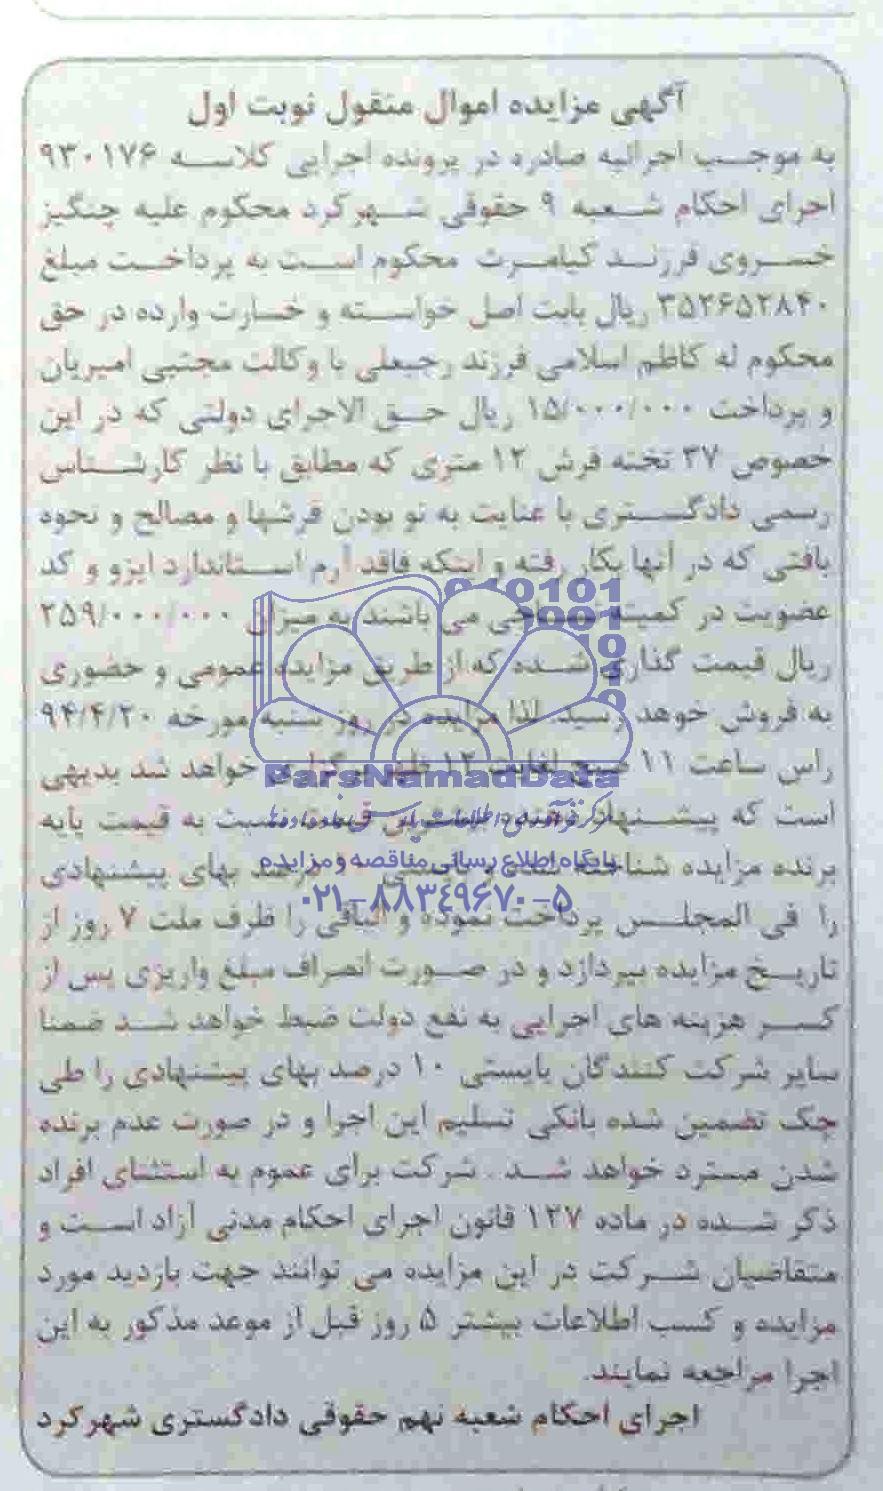 آگهی مزایده اموال منقول نوبت اول
به موجب اجرائیه صادره در پرونده اجرایی کلاسه ۹۳۰۱۷۶
اجرای احکام شعبه ۹ حقوقی شهرکرد محکوم علیه چنگیز
خسروی فرزند کیامرث محکوم است به پرداخت مبلغ
۳۵۲۶۵۲۸۴۰ ریال بابت اصل خواسته و خسارت وارده در حق
محکوم له کاظم اسلامی فرزند رجبعلی با وکالت مجتبی امیریان
و پرداخت ۱۵/۰۰۰/۰۰۰ ریال حق الاجرای دولتی که در این
خصوص ۳۷ تخته فرش ۱۲ متری که مطابق با نظر کارشناس
رسمی دادگستری با عنایت به نو بودن فرشها و مصالح و نحوه
بافتی که در آنها بکار رفته و اینکه فاقد آرم استاندارد ایزو و کد
عضویت در کمیته می باشند به میزان ۲۵۹/۰۰۰/۰۰۰
ریال قیمت گذاری شده که از طریق مزایده عمومی و حضوری
به فروش خوهد رسید. لذا مزایده در روز شنبه مورخه ۹۴/۴/۲۰
راس ساعت ۱۱ صبح لغایت ۱۲ ظهر برگزاری خواهد شد بدیهی
است که پیشنهاد دهنده بالاترین قیمت نسبت به قیمت پایه
برنده مزایده شناخته شده و بایستی ۱۰ درصد بهای پیشنهادی
را فی المجلس پرداخت نموده و الباقی را ظرف ملت ۷ روز از
تاریخ مزایده بپردازد و در صورت انصراف مبلغ واریزی پس از
کسر هزینه های اجرایی به نفع دولت ضبط خواهد شد ضمنا
سایر شرکت کنندگان بایستی ۱۰ درصد بهای پیشنهادی را طی
چک تضمین شده بانکی تسلیم این اجرا و در صورت عدم برنده
شدن مسترد خواهد شد. شرکت برای عموم به استثنای افراد
ذکر شده در ماده ۱۲۷ قانون اجرای احکام مدنی آزاد است و
متقاضیان شرکت در این مزایده می توانند جهت بازدید مورد
مزایده و کسب اطلاعات بیشتر ۵ روز قبل از موعد مذکور به این
اجرا مراجعه نمایند.
اجرای احکام شعبه نهم حقوقی دادگستری شهرکرد
ParsNamadData
پایگاه اطلاع رسانی مناقصه و مزایده
۰۲۱-۸۸۳۴۹۶۷۰-۵